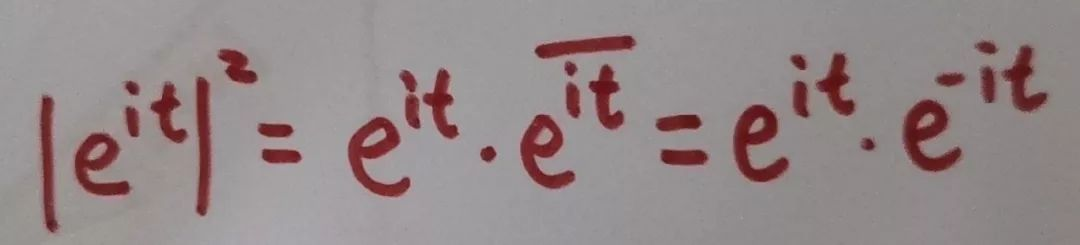 |e^{it}|^2 = e^{it} · e^{\overline{it}} = e^{it} · e^{-it}